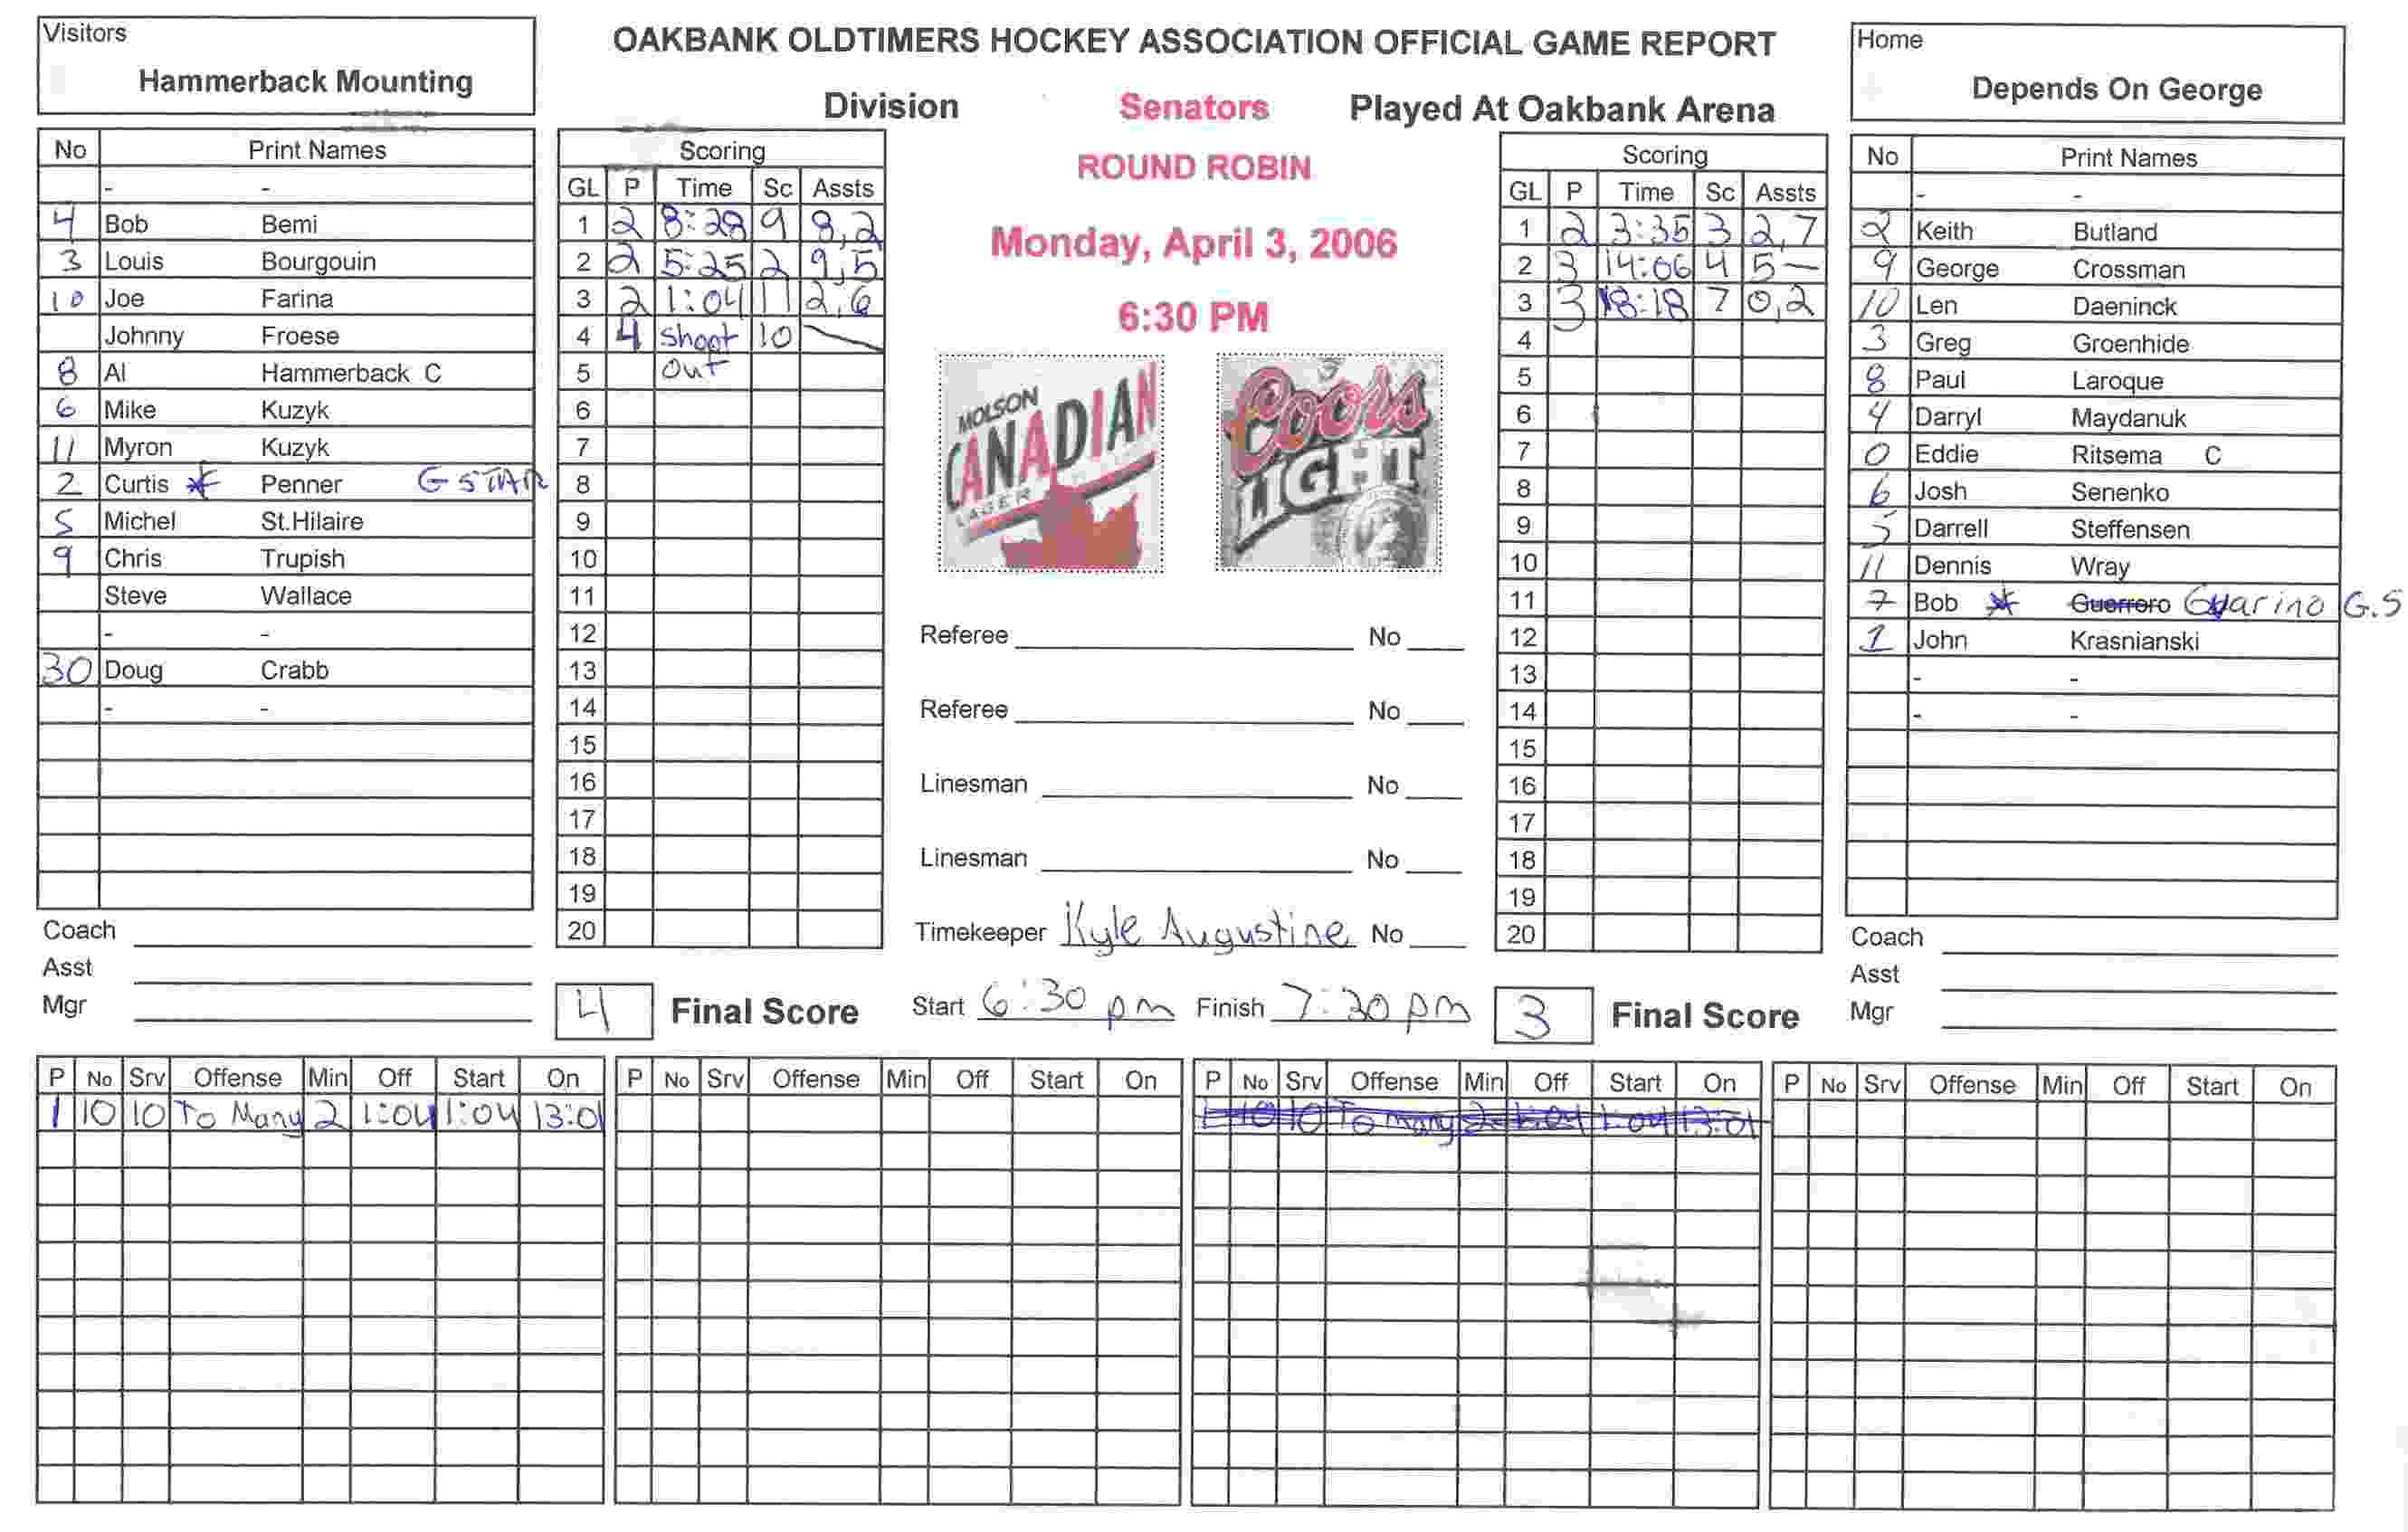 Visitors
Hammerback Mounting
OAKBANK OLDTIMERS HOCKEY ASSOCIATION OFFICIAL GAME REPORT
Division Senators Played At Oakbank Arena
ROUND ROBIN
Monday, April 3, 2006
6:30 PM
Home
Depends On George
No Print Names
- -
4 Bob Bemi
3 Louis Bourgouin
10 Joe Farina
Johnny Froese
8 Al Hammerback C
6 Mike Kuzyk
11 Myron Kuzyk
2 Curtis * Penner G STAR
5 Michel St.Hilaire
9 Chris Trupish
Steve Wallace
- -
30 Doug Crabb
- -
Coach
Asst
Mgr
Scoring
GL P Time Sc Assts
1 2 8:28 9 8,2
2 2 5:25 2 9,5
3 2 1:04 11 2,6
4 4 Shoot 10
5 Out
6
7
8
9
10
11
12
13
14
15
16
17
18
19
20
4 Final Score
MOLSON
CANADIAN
LAGER
Coors
LIGHT
Referee No
Referee No
Linesman No
Linesman No
Timekeeper Kyle Augustine No
Start 6:30 pm Finish 7:30 pm
Scoring
GL P Time Sc Assts
1 2 3:35 3 2,7
2 3 14:06 4 5 —
3 3 18:18 7 0,2
4
5
6
7
8
9
10
11
12
13
14
15
16
17
18
19
20
3 Final Score
No Print Names
- -
2 Keith Butland
9 George Crossman
10 Len Daeninck
3 Greg Groenhide
8 Paul Laroque
4 Darryl Maydanuk
0 Eddie Ritsema C
6 Josh Senenko
5 Darrell Steffensen
11 Dennis Wray
7 Bob * Guerrero Guarino G.S
1 John Krasnianski
- -
- -
Coach
Asst
Mgr
P No Srv Offense Min Off Start On
1 10 10 To Many 2 1:04 1:04 13:01
P No Srv Offense Min Off Start On
P No Srv Offense Min Off Start On
1 10 10 To many 2 1:04 1:04 13:01
P No Srv Offense Min Off Start On